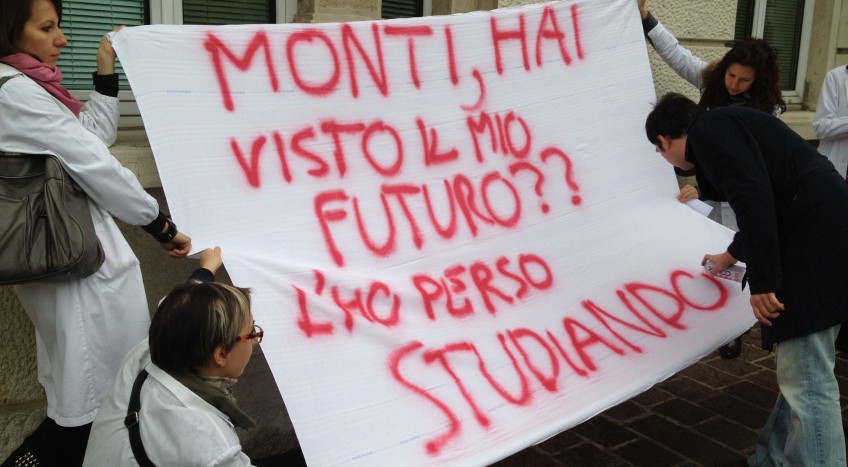 MONTI, HAI
VISTO IL MIO
FUTURO??
L'HO PERSO
STUDIANDO